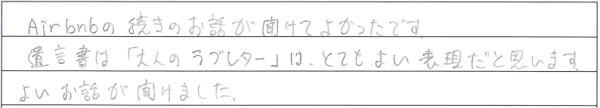 Airbnbの続きのお話が聞けてよかったです
遺言書は「大人のラブレター」は、とてもよい表現だと思います
よいお話が聞けました.